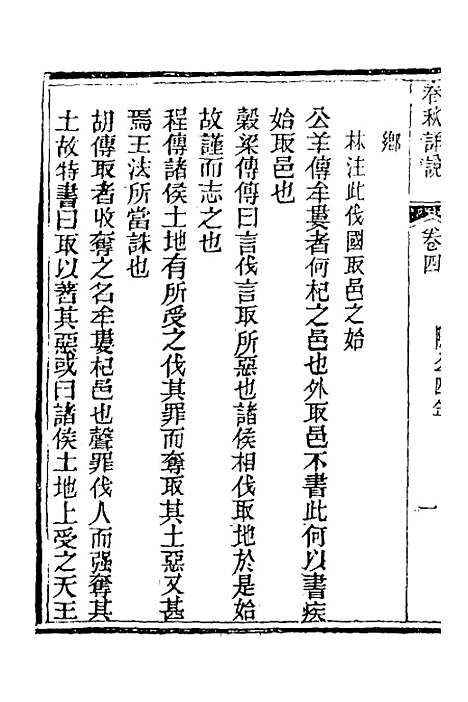 春秋詳說
卷四
隱公四年
一
鄉
林注此伐國取邑之始
公羊傳牟婁者何杞之邑也外取邑不書此何以書疾
始取邑也
穀梁傳傳曰言伐言取所惡也諸侯相伐取地於是始
故謹而志之也
程傳諸侯土地有所受之伐其罪而奪取其土惡又甚
焉王法所當誅也
胡傳取者收奪之名牟婁杞邑也聲罪伐人而强奪其
土故特書曰取以著其惡或曰諸侯土地上受之天王